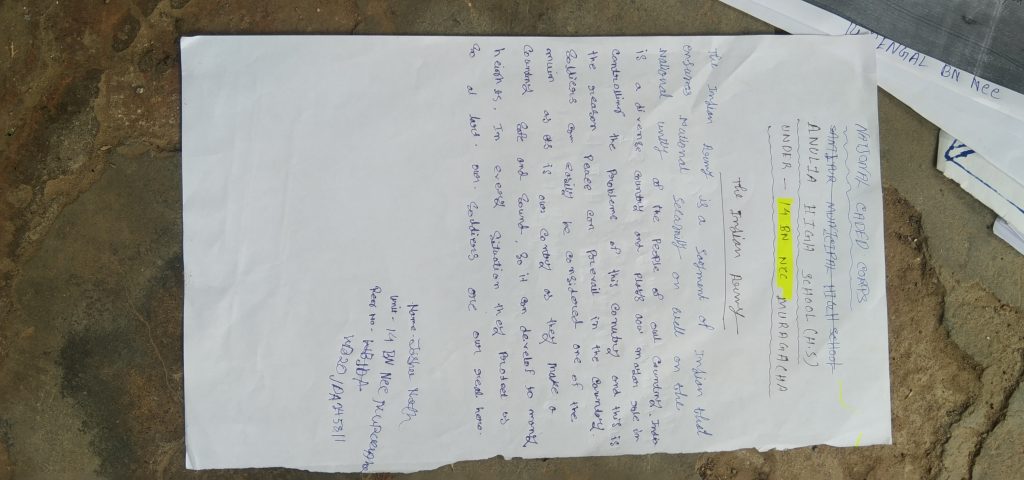 NATIONAL CADED CORPS
SANTIPUR MUNICIPAL HIGH SCHOOL
ANULIA HIGH SCHOOL (H.S)
UNDER - 14 BN NCC MURAGACHA
The Indian Army
The Indian Army is a segment of Indian that
ensures National Security on well on the
National unity of the People of our Country. India
is a diverse country and plays our major role in
controlling the Problems of this Country and this is
the reason Peace can Prevail in the Country.
Soldiers can easily be considered one of the
mum as as is our Contry as they make a
Country Safe and Sound, So it can develop to many
heights. In every Situation they Protect us
So at last. our Soldiers are our real hero.
Name - Nath
Unit - 14 BN NCC
Regt No -
WB20/
BENGAL BN NCC